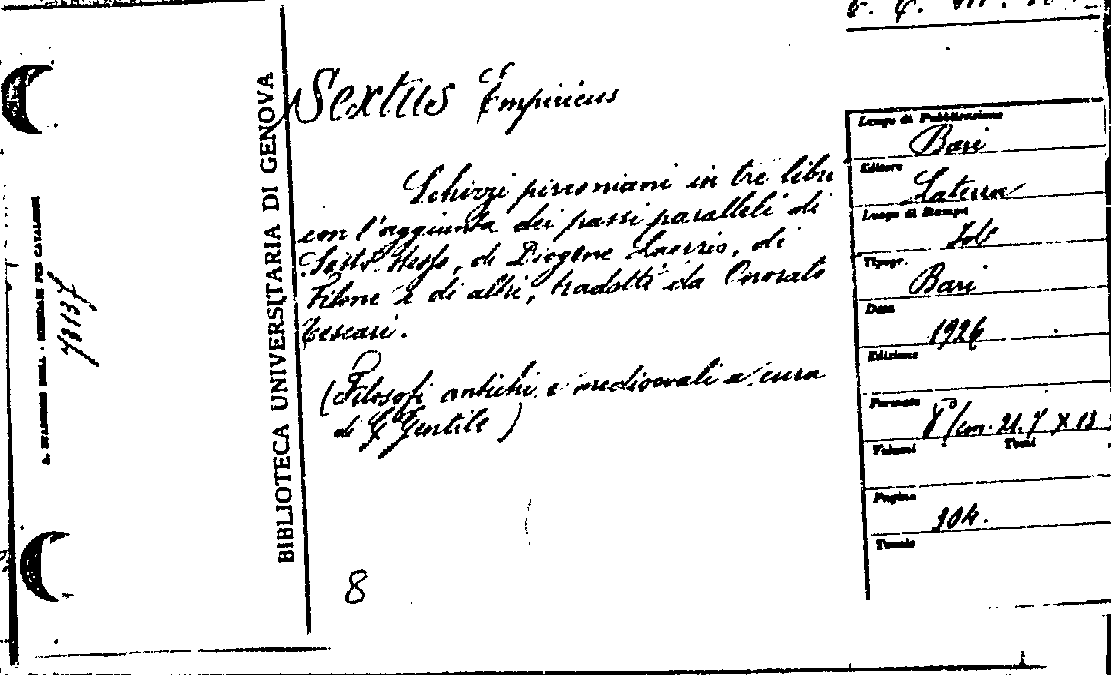 Sextus Empiricus
Schizzi pirroniani in tre libri
con l'aggiunta dei passi paralleli di
Sesto stesso, di Diogene Laerzio, di
Filone e di altri, tradotti da Onorato
Tescari.
(Filosofi antichi e medioevali a cura
di G. Gentile)
8
BIBLIOTECA UNIVERSITARIA DI GENOVA
Luogo di Pubblicazione
Bari
Editore
Laterza
Luogo di Stampa
Tipogr.
Bari
Data
1926
Edizione
Formato
8º/cm. 21.7 X 13
Volumi Tomi
Pagine
304.
Tavole